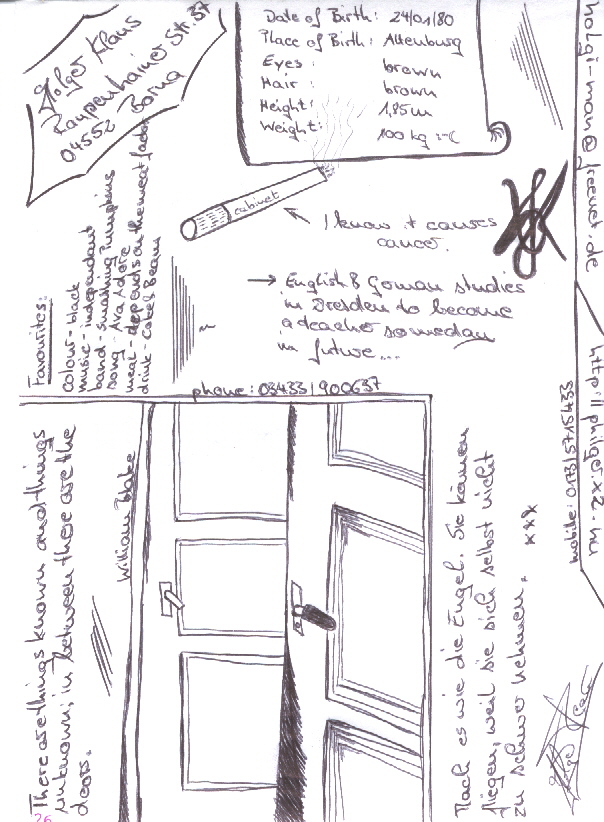 Holger Klaus
Raupenhainer Str. 37
04552 Borna
Date of Birth: 24/01/80
Place of Birth: Altenburg
Eyes: brown
Hair: brown
Height: 1,85m
Weight: 100 kg :-(
holgi-man@freenet.de
http://philger.x2.hu
mobile: 0173/5715433
cabinet
I know it causes
cancer.
→ English & German studies
in Dresden to become
a teacher someday
in future...
Favourites:
colour - black
music - independant
band - smashing Pumpkins
song - Ava Adore
meal - depends on the meat factor
drink - Coke & Beam
phone: 03433/900637
There are things known and things
unknown; in between there are the
doors.
William Blake
Mach es wie die Engel. Sie können
fliegen, weil sie sich selbst nicht
zu schwer nehmen.
***
26